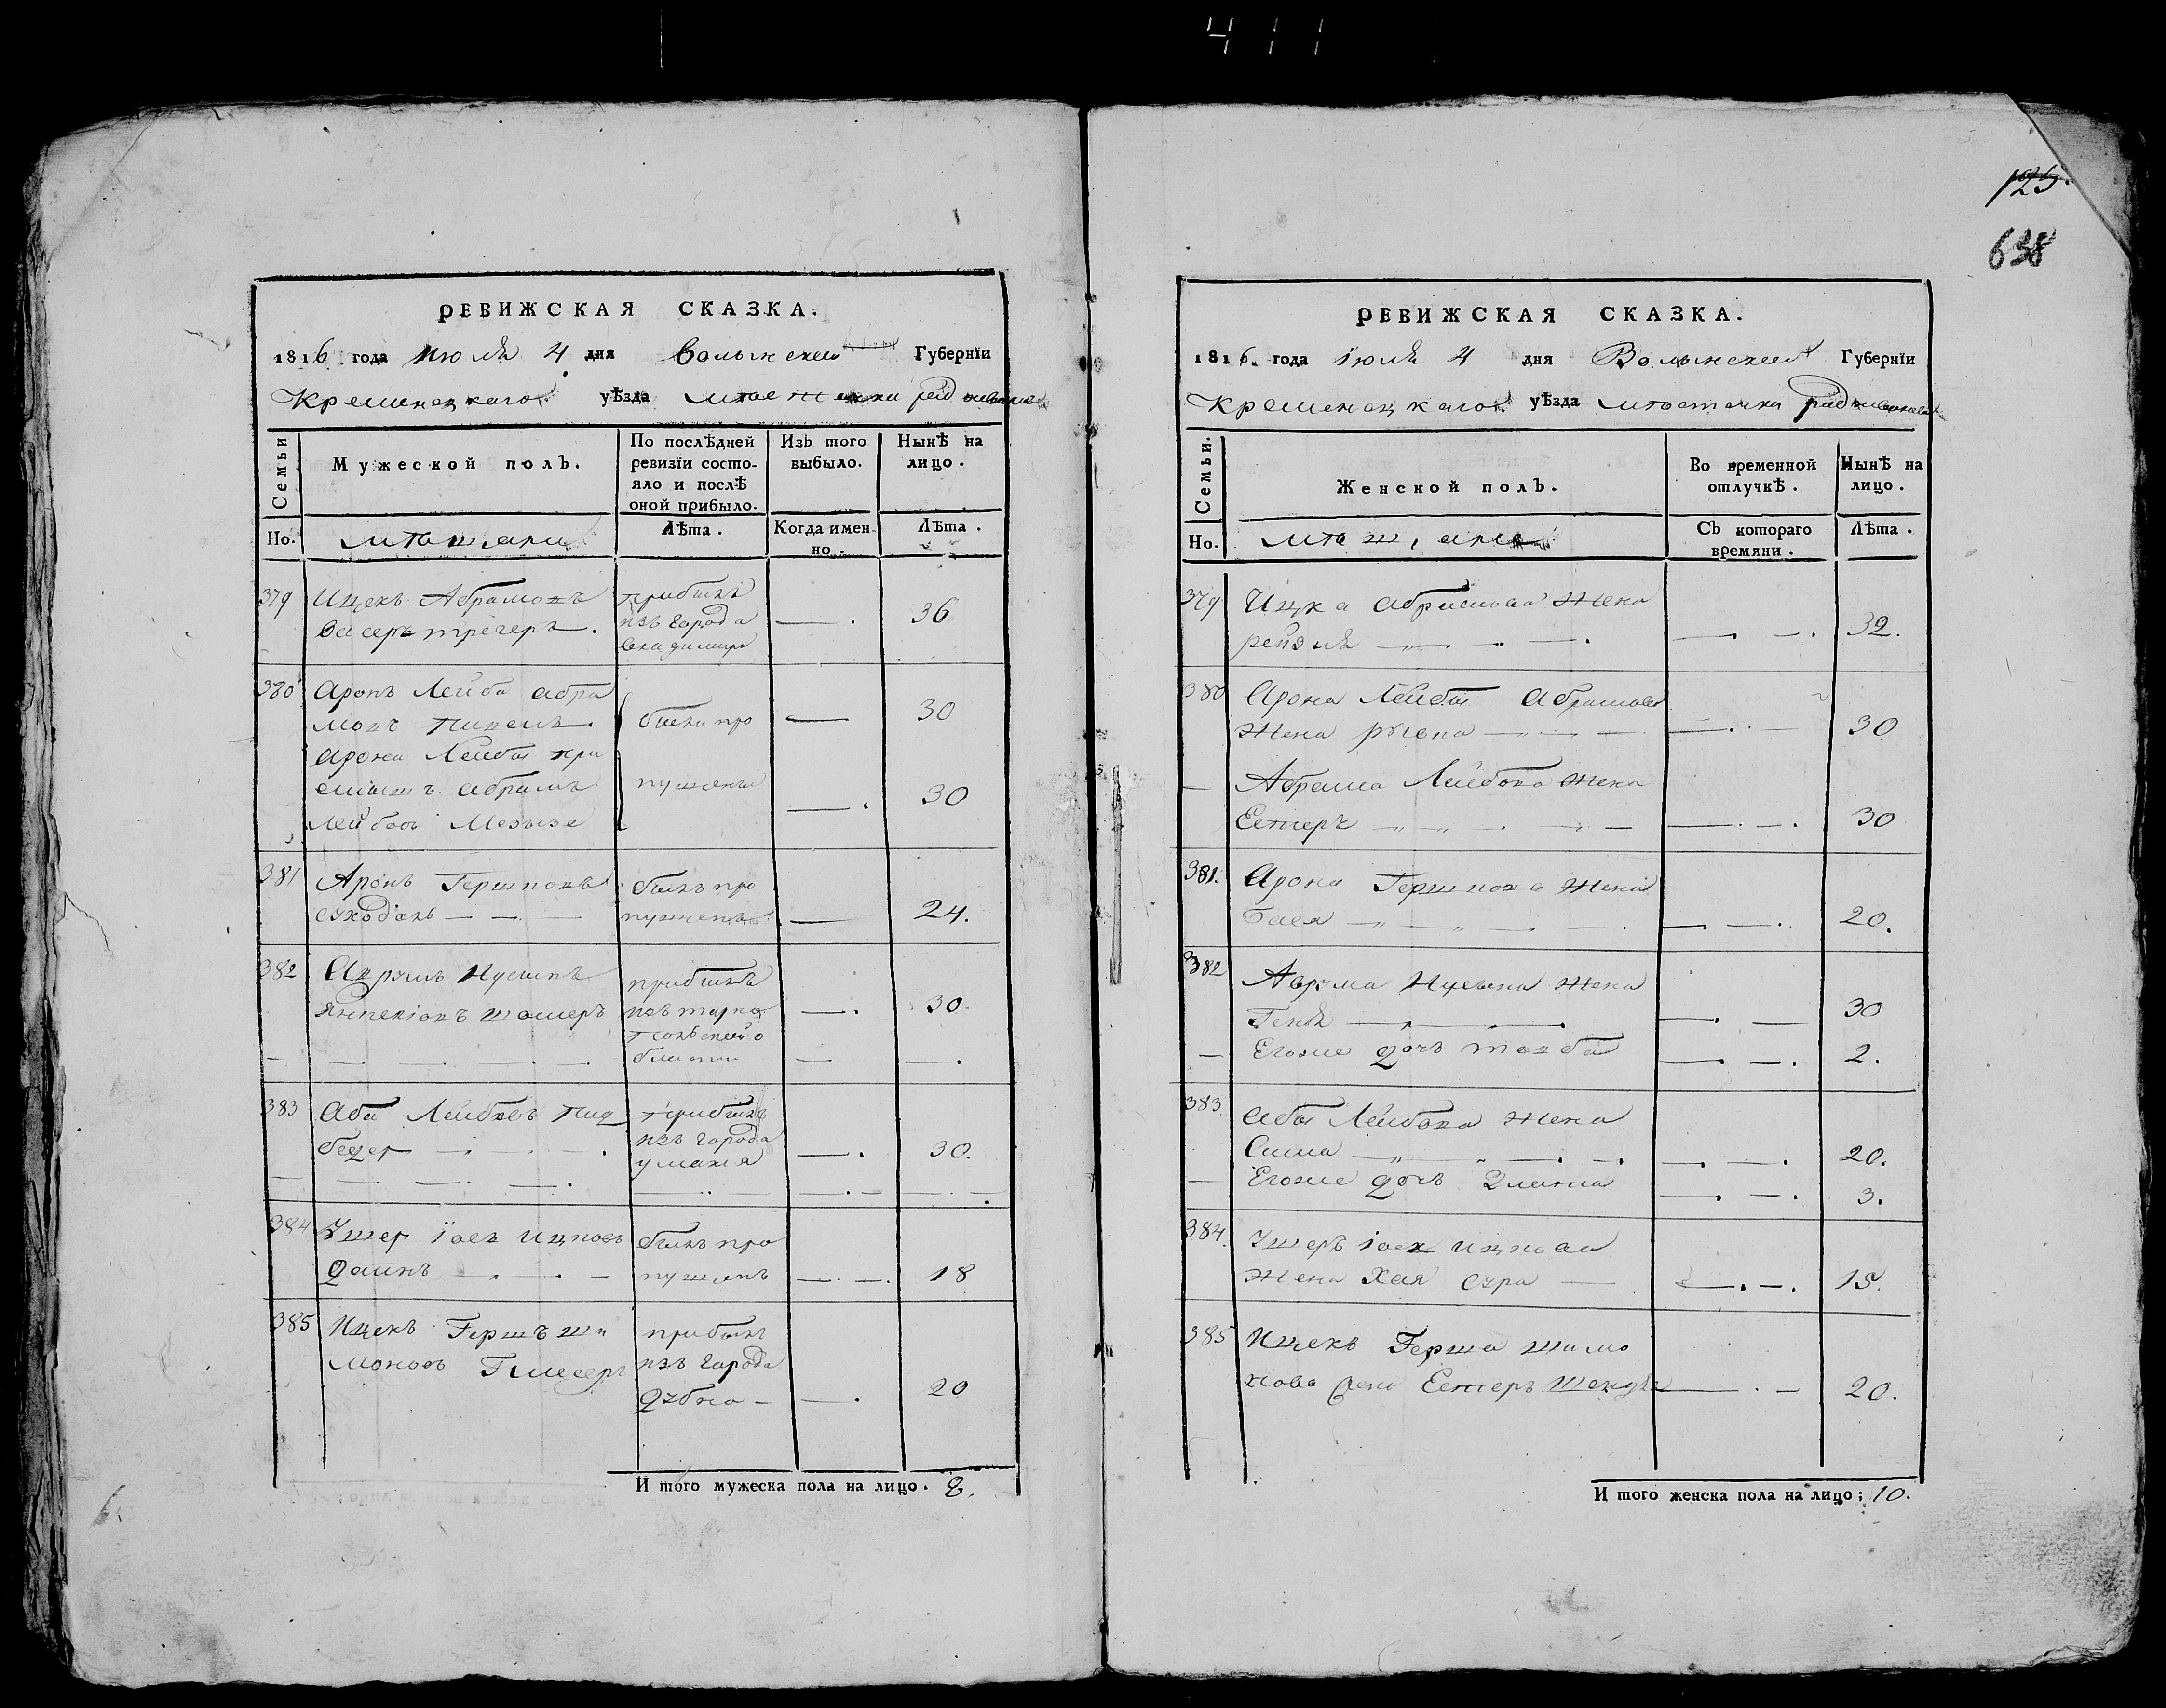 411
125.
638
РЕВИЖСКАЯ СКАЗКА.
1816 года июля 4 дня Волынской Губернїи
Кременецкаго уѣзда местечка Радзивилова
Семьи
Мужеской полъ.
По послѣдней ревизїи состо-
яло и послѣ
оной прибыло.
Изъ того
выбыло.
Нынѣ на
лицо.
Но.
мещане
Лѣта.
Когда имен-
но.
Лѣта.
379 Ицекъ Абрамовъ прибылъ
Васертрегеръ. изъ города — . 36
Владимира
380 Аронъ Лейба Абра
мовъ были про — 30
Арона Лейбы при
емышъ Абрамъ пущены — . 30
Лейбовъ
381 Аронъ Гершковъ былъ про
пущенъ — 24.
382 Аврумъ Ицковъ прибылъ
Янкелювъ изъ тарно — . 30
польской о
бласти — — .
383 Аба Лейбовъ прибылъ
изъ города — . 30.
уманя
384 Ушер Иосъ Ицковъ былъ про
Даинъ пущенъ — . — . 18
385 Ицекъ Гершъ Ши прибылъ
моновъ Глесеръ изъ города
Дубно — — . 20
И того мужеска пола на лицо. 8.
РЕВИЖСКАЯ СКАЗКА.
1816. года июля 4 дня Волынской Губернїи
Кременецкаго уѣзда местечка Радзивилова
Семьи.
Женской полъ.
Во временной
отлучкѣ.
Нынѣ на
лицо.
Но.
мещане
Съ котораго
времяни.
Лѣта.
379 Ицка Абрамова жена
рейзя — — . 32.
380 Арона Лейбы Абрамова
жена — . — 30
— Абрама Лейбова жена
Естеръ — . — . 30
381. Арона Гершкова жена
Бася — . — . 20.
382 Аврума Ицкова жена
Геня — . — 30
— Егоже дочь тауба — . — . 2.
383. Абы Лейбова жена
Сима — . — . 20.
— Егоже дочь Злата — . — . 3.
384. Ушеръ Иосъ Ицкова
жена Хая Сура — . — . 15.
385 Ицекъ Герша Шимо
нова жена Естеръ Шендля — . — 20.
И того женска пола на лицо; 10.
6.